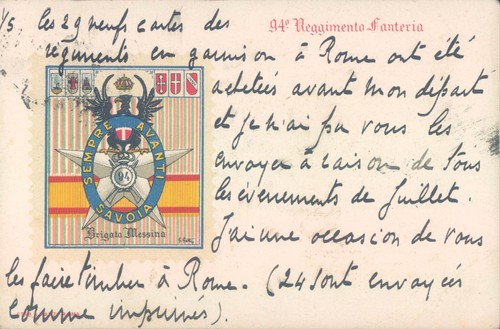 94º Reggimento Fanteria
1/5 Les 29 neufs cartes des
régiments en garnison à Rome ont été
achetées avant mon départ
et je n'ai pu vous les
envoyer à raison de tous
les évènements de Juillet.
J'ai une occasion de vous
les faire timbrer à Rome. (24 sont envoyées
comme imprimés).
SEMPRE AVANTI
SAVOIA
94
Brigata Messina